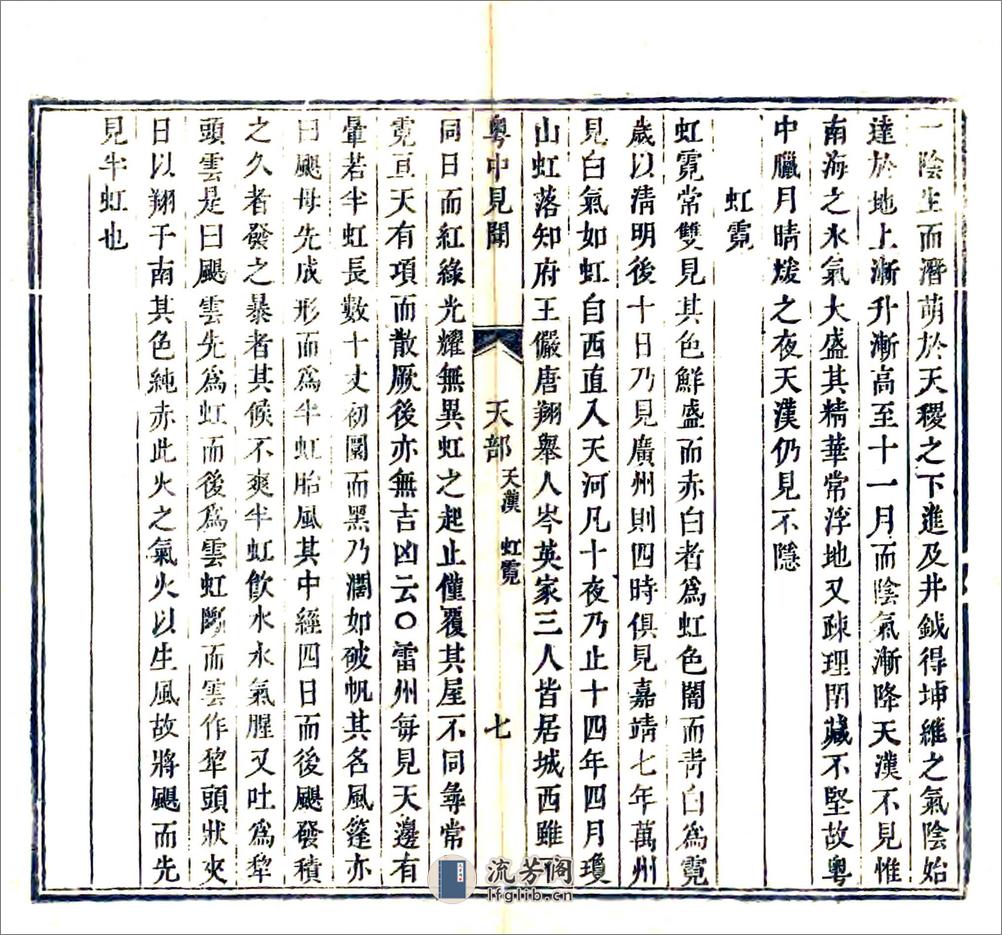 一陰生而潛萌於天稷之下進及井鉞得坤維之氣陰始
達於地上漸升漸高至十一月而陰氣漸降天漢不見惟
南海之水氣大盛其精華常浮地又疎理閉藏不堅故粤
中臘月晴煖之夜天漢仍見不隱
虹霓
虹霓常雙見其色鮮盛而赤白者爲虹色闇而靑白爲霓
歲以淸明後十日乃見廣州則四時俱見嘉靖七年萬州
見白氣如虹自西直入天河凡十夜乃止十四年四月瓊
山虹落知府王儼唐翔舉人岑英家三人皆居城西雖
粤中見聞 天部 天漢 虹霓 七
同日而紅綠光耀無異虹之起止僅覆其屋不同彝常
霓亘天有項而散厥後亦無吉凶云〇雷州每見天邊有
暈若半虹長數十丈初圓而黑乃濶如破帆其名風篷亦
曰颶母先成形而爲半虹胎風其中經四日而後颶發積
之久者發之暴者其候不爽半虹飮水水氣腥又吐爲犂
頭雲是曰颶雲先爲虹而後爲雲虹斷而雲作犂頭狀夾
日以翔于南其色純赤此火之氣火以生風故將颶而先
見半虹也
流芳阁
lfglib.cn